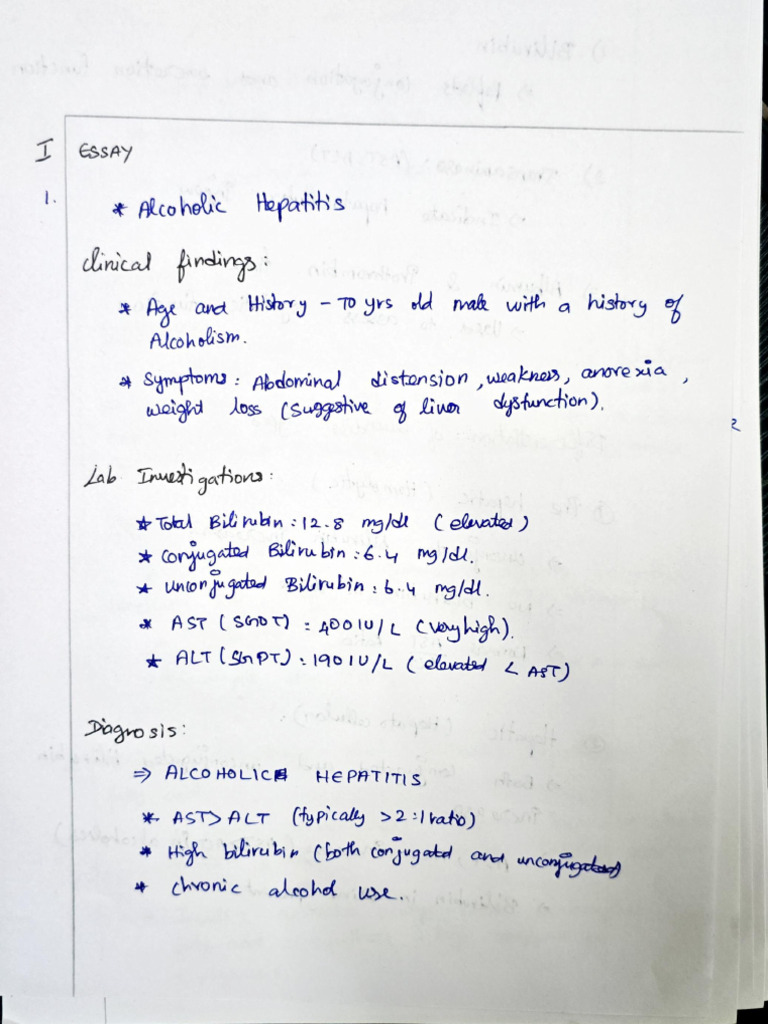 I ESSAY
1. * Alcoholic Hepatitis
Clinical findings:
* Age and History - 70 yrs old male with a history of
Alcoholism.
* Symptoms: Abdominal distension, weakness, anorexia,
weight loss (Suggestive of liver dysfunction).
Lab Investigations:
* Total Bilirubin: 12.8 mg/dl (elevated)
* Conjugated Bilirubin: 6.4 mg/dl.
* Unconjugated Bilirubin: 6.4 mg/dl.
* AST (SGOT) : 400 IU/L (very high).
* ALT (SGPT) : 190 IU/L (elevated < AST)
Diagnosis:
⇒ ALCOHOLIC HEPATITIS
* AST > ALT (typically >2:1 ratio)
* High bilirubin (both conjugated and unconjugated)
* chronic alcohol use.